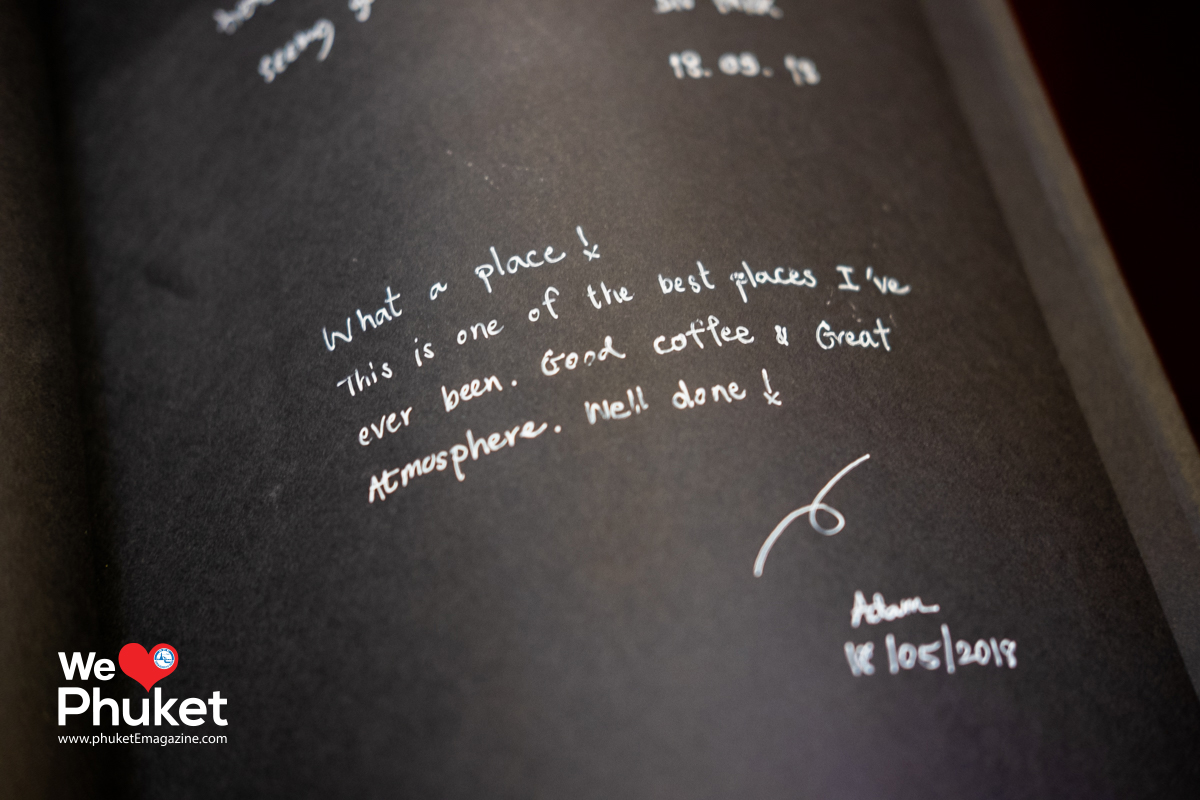 seeing
18.05.18
What a place!
This is one of the best places I've
ever been. Good coffee & Great
Atmosphere. Well done!
Adam
18/05/2018
We
Phuket
www.phuketEmagazine.com